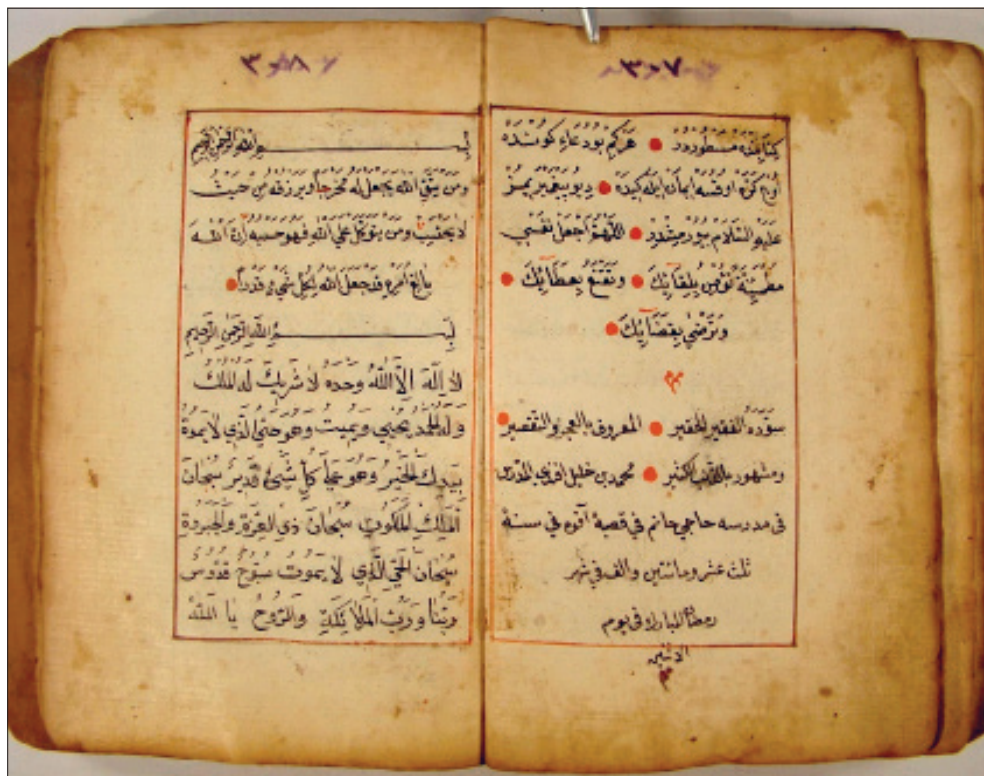 ٣٠٧
كتابنده مسطوردر ● هركم بو دعاء كونده
اوچ كره اوقسه ايمان ايله كيده ● ديو پيغمبريمز
عليه السلام بيورمشدر ● اللهم اجعل نفسي
مطمئنة تؤمن بلقائك ● وتقنع بعطائك ●
وترضى بقضائك ●
سوده الفقير الحقير ● المعروف بالعجز والتقصير ●
ومشهور بالذنب الكثير ● محمد بن خليل المدرس
فى مدرسه حاجي خانم في قصبهٔ في سنة
ثلث عشر ومائتين والف في شهر
رمضان المبارك فى يوم
الاثنين
٣٠٨
بسم الله الرحمن الرحيم
ومن يتق الله يجعل له مخرجا ويرزقه من حيث
لا يحتسب ومن يتوكل على الله فهو حسبه ان الله
بالغ امره قد جعل الله لكل شيء قدرا ●
بسم الله الرحمن الرحيم
لا اله الا الله وحده لا شريك له له الملك
وله الحمد يحيي ويميت وهو حي الذي لا يموة
بيدك الخير وهو على كل شيئ قدير سبحان
الملك الملكوت سبحان ذي العزة والجبروة
سبحان الحي الذي لا يموت سبوح قدوس
ربنا ورب الملائكة والروح يا الله